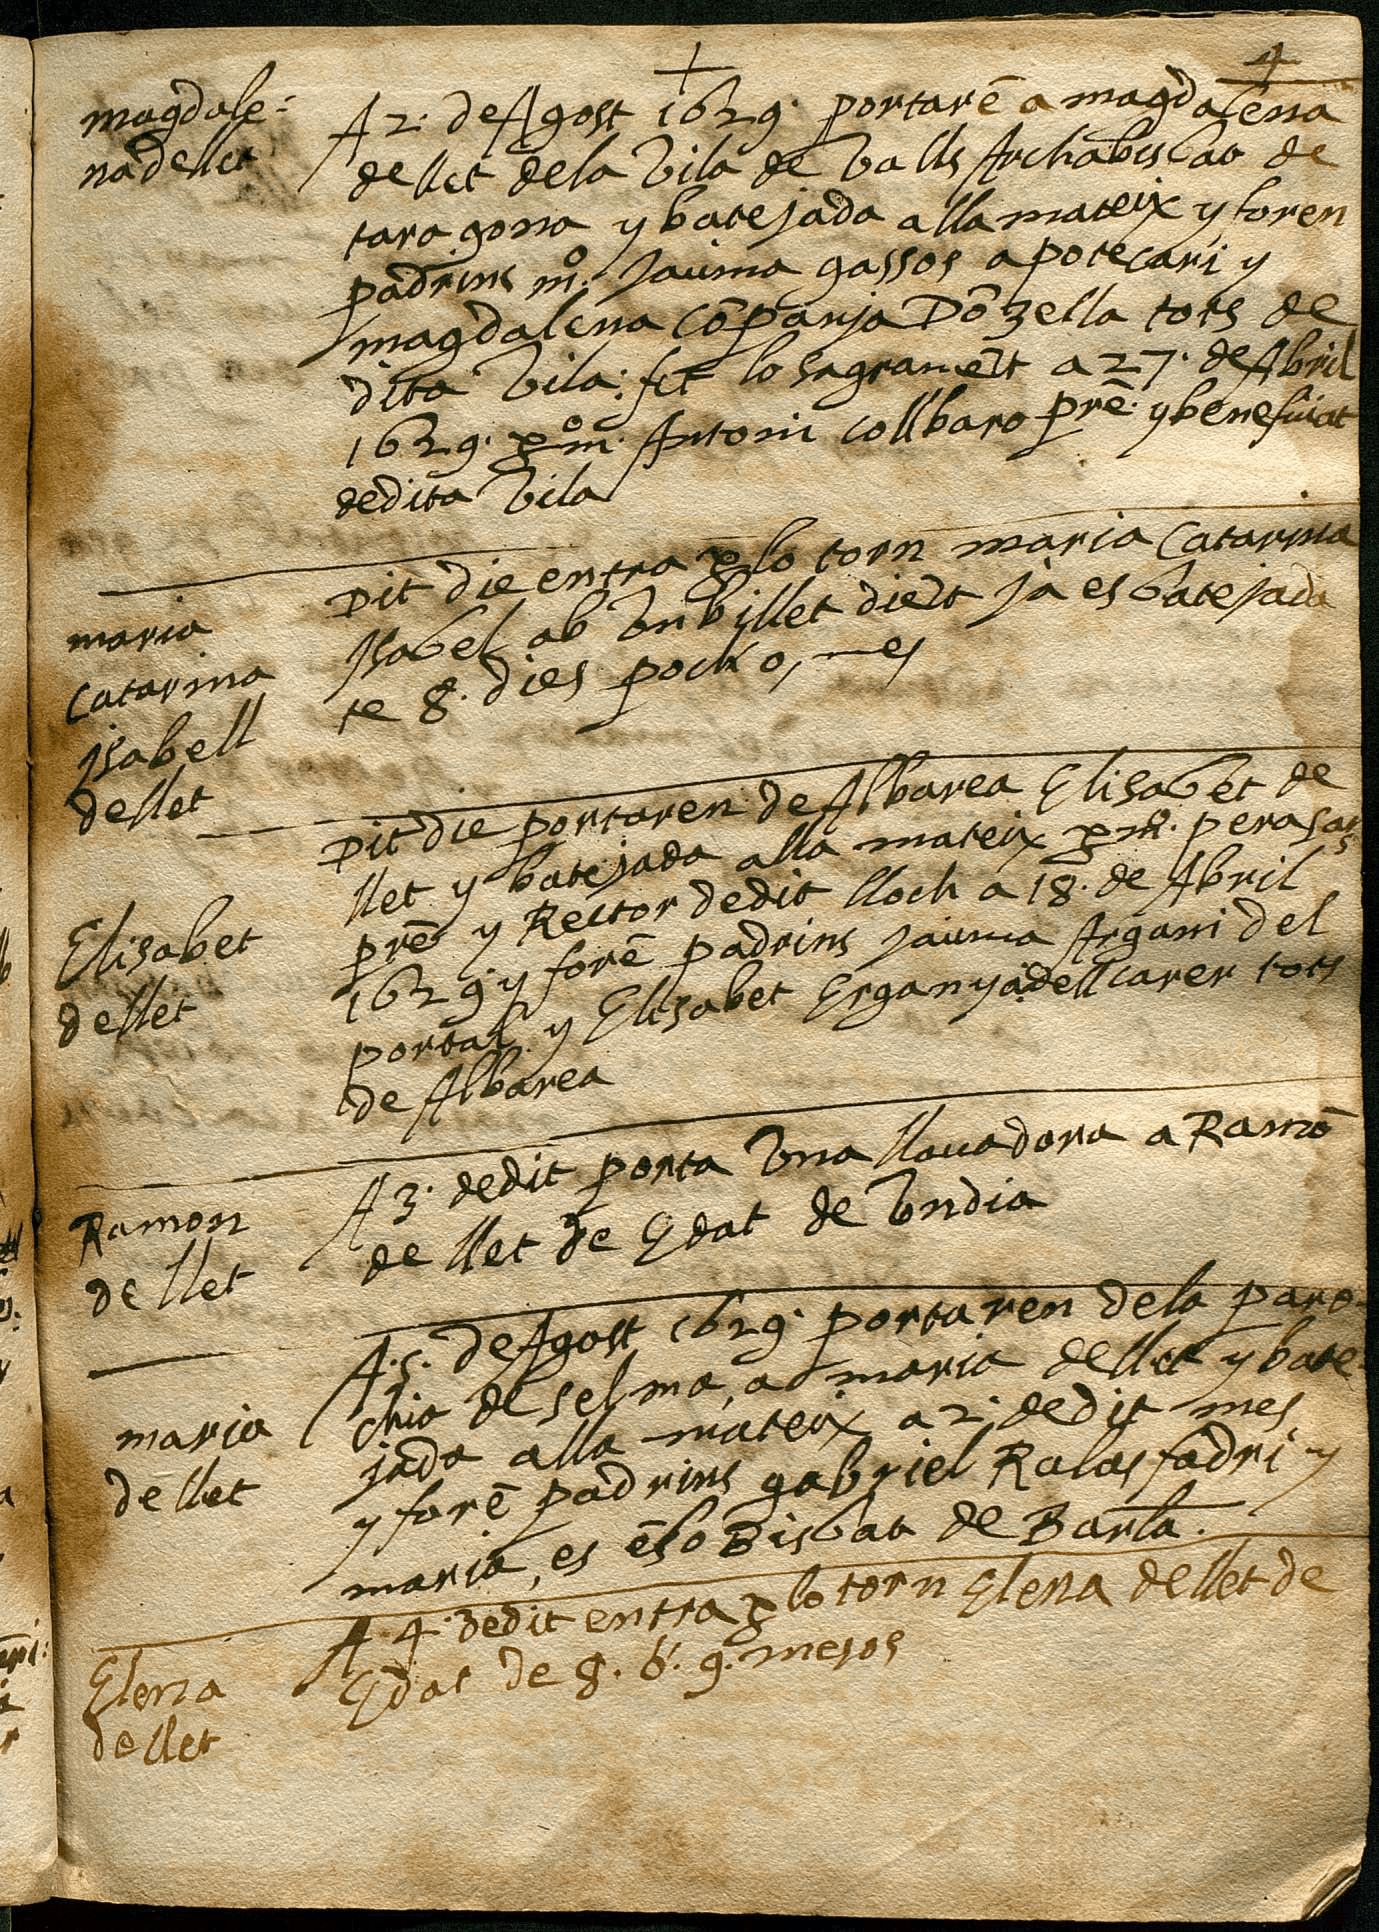 4
magdale=
na de llet
A 2. de Agost 1629. portarē a magdalena
de llet de la Vila de Valls Archabisbat de
taragona y batejada alla mateix y foren
padrins mº. Jauma gassos apotecari y
magdalena Cōpanja Dōzella tots de
dita Vila: fet lo sagramēt a 27. de Abril
1629. p mº. Antoni collbaro prē. y beneficiat
de dita Vila
maria
Catarina
jsabell
de llet
Dit die entra p lo torn maria Catarina
Jsabel ab Vn billet diēt ja es batejada
te 8. dies poch o, mes
Elisabet
de llet
Dit die portaren de Albarea Elisabet de
llet y batejada alla mateix p mº. pera
prē y Rector de dit lloch a 18. de Abril
1629 y forē padrins jauma Argani del
portal y Elisabet Erganya del carer tots
de Albarea
Ramon
de llet
A 3. de dit porta Vna llauadora a Ramō
de llet de Edat de Vn dia
maria
de llet
A 5. de Agost 1629. portaren de la paro=
chia de selma, a maria de llet y bate=
jada alla mateix a 2. de dit mes
y forē padrins gabriel Ralas fadri y
maria, es ē lo Bisbat de Barla.
Elena
de llet
A 4. de dit entra p lo torn Elena de llet de
Edat de 8. o. 9. mesos